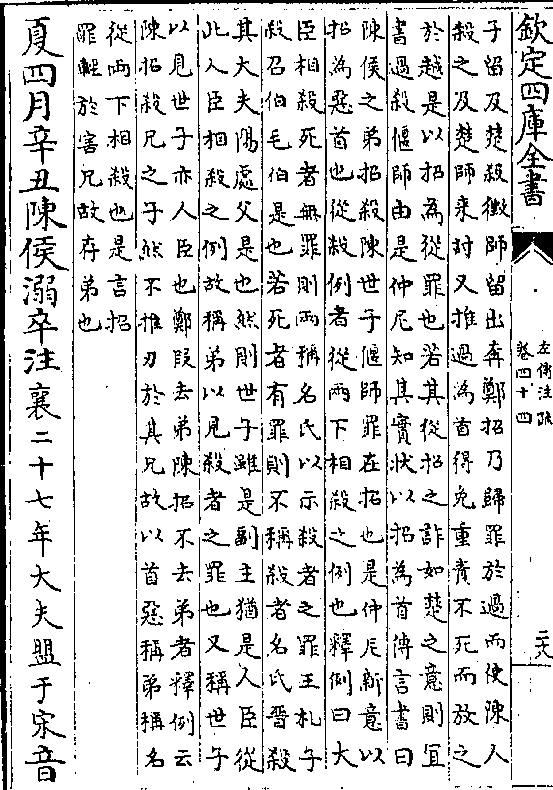 欽定四庫全書
左傳注疏
卷四十四
二六
子留及楚殺徵師留出奔鄭招乃歸罪於過而使陳人
殺之及楚師來討又推過為首得免重責不死而放之
於越是以招為從罪也若其從招之詐如楚之意則宜
書過殺偃師由是仲尼知其實狀以招為首傳言書曰
陳侯之弟招殺陳世子偃師罪在招也是仲尼新意以
招為惡首也從殺例者從兩下相殺之例也釋例曰大
臣相殺死者無罪則兩稱名氏以示殺者之罪王札子
殺召伯毛伯是也若死者有罪則不稱殺者名氏晉殺
其大夫陽處父是也然則世子雖是副主猶是人臣從
此人臣相殺之例故稱弟以見殺者之罪也又稱世子
以見世子亦人臣也鄭段去弟陳招不去弟者釋例云
陳招殺兄之子然不推刃於其兄故以首惡稱弟稱名
從兩下相殺也是言招
罪輕於害兄故存弟也
夏四月辛丑陳侯溺卒注襄二十七年大夫盟于宋音